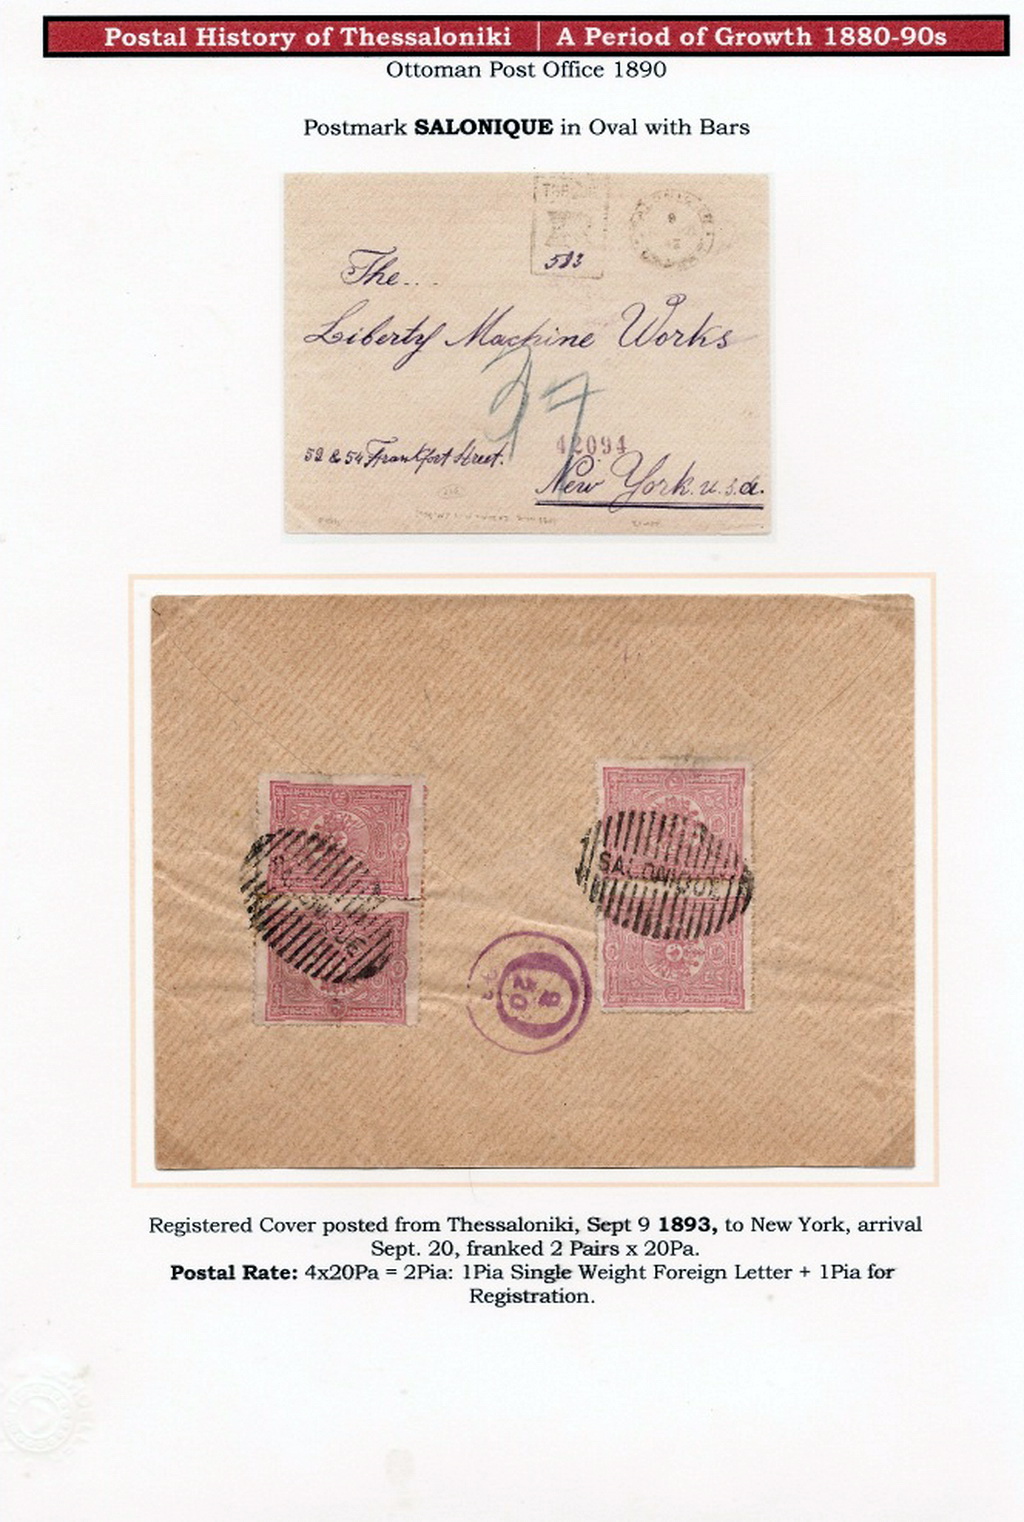 Postal History of Thessaloniki | A Period of Growth 1880-90s
Ottoman Post Office 1890
Postmark SALONIQUE in Oval with Bars
583
9
The...
Liberty Machine Works
27
42094
52 & 54 Frankfort Street.
New York. u. s. a.
SALONIQUE
SALONIQUE
9
20
Registered Cover posted from Thessaloniki, Sept 9 1893, to New York, arrival
Sept. 20, franked 2 Pairs x 20Pa.
Postal Rate: 4x20Pa = 2Pia: 1Pia Single Weight Foreign Letter + 1Pia for
Registration.